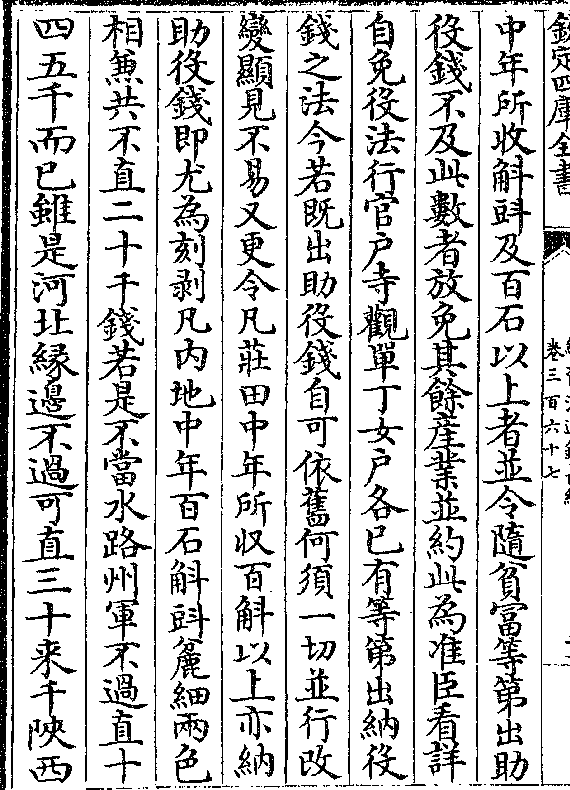 欽定四庫全書
卷三百六十七
中年所收斛㪷及百石以上者並令隨貧富等第出助
役錢不及此數者放免其餘産業並約此為准臣看詳
自免役法行官戶寺觀單丁女戶各已有等第出納役
錢之法今若既出助役錢自可依舊何須一切並行改
變顯見不易又更令凡莊田中年所收百斛以上亦納
助役錢即尤為刻剥凡内地中年百石斛㪷麄細兩色
相兼共不直二十千錢若是不當水路州軍不過直十
四五千而已雖是河北緣邊不過可直三十来千陜西